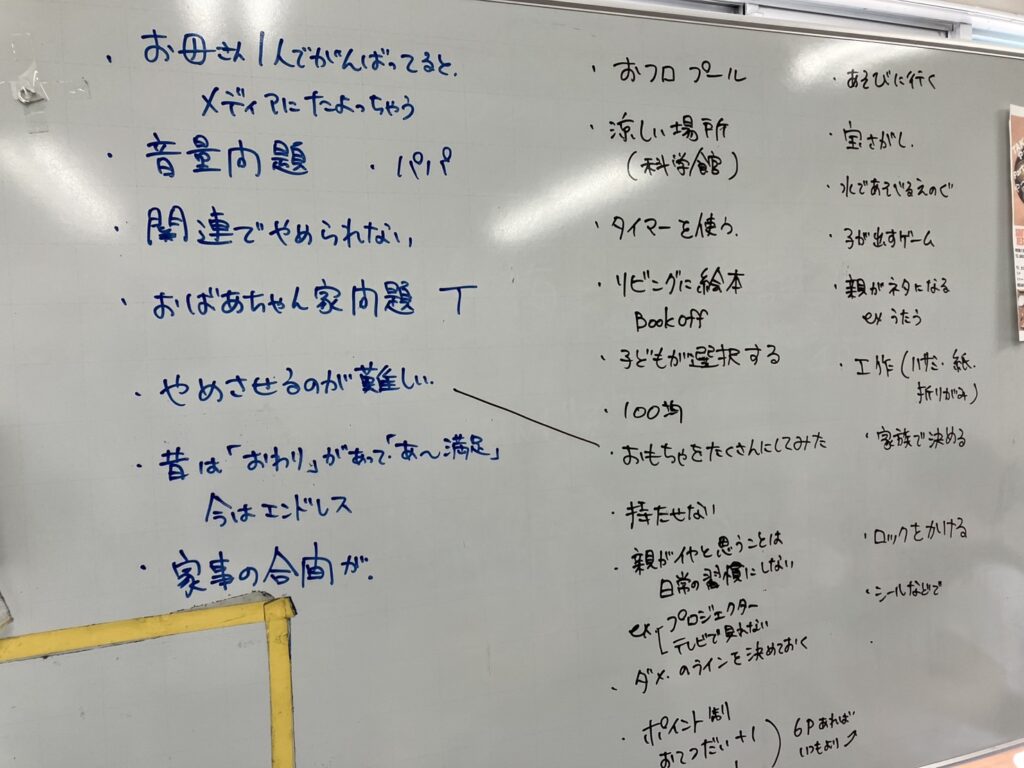 ・お母さん1人でがんばってると、
メディアにたよっちゃう
・音量問題 ・パパ
・関連でやめられない
・おばあちゃん家問題 T
・やめさせるのが難しい
・昔は「おわり」があって「あ〜満足」
今はエンドレス
・家事の合間が
・おフロ プール
・涼しい場所
(科学館)
・タイマーを使う
・リビングに絵本
Book off
・子どもが選択する
・100均
・おもちゃをたくさんにしてみた
・持たせない
・親がイヤと思うことは
日常の習慣にしない
ex プロジェクター
テレビで見れない
・ダメのラインを決めておく
・ポイント制
おてつだい+1
6Pあれば
いつもより
・あそびに行く
・宝さがし
・水であそべるえのぐ
・子が出すゲーム
・親がネタになる
ex うたう
・工作(ハサミ・紙・
折りがみ)
・家族で決める
・ロックをかける
・シールなどで
・